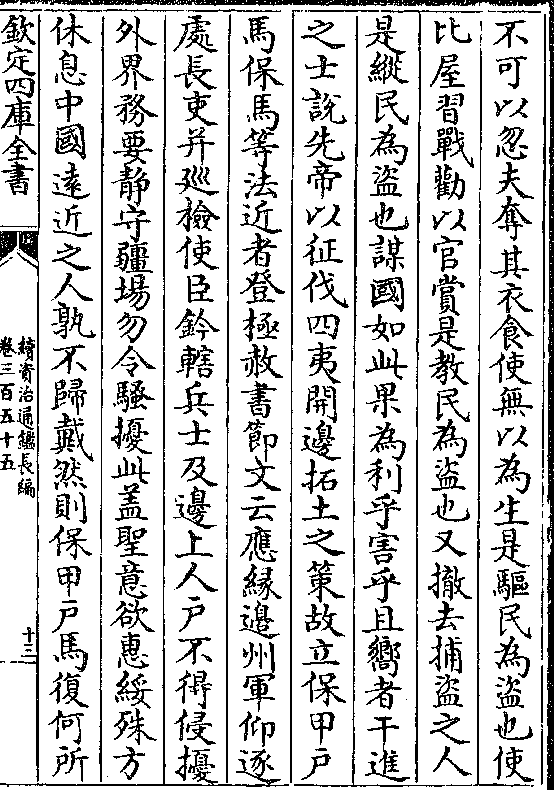 不可以忽夫奪其衣食使無以為生是驅民為盜也使
比屋習戰勸以官賞是教民為盜也又撤去捕盜之人
是縱民為盜也謀國如此果為利乎害乎且嚮者干進
之士說先帝以征伐四夷開邊拓土之策故立保甲戶
馬保馬等法近者登極赦書節文云應緣邊州軍仰逐
處長吏并廵檢使臣鈐轄兵士及邊上人戶不得侵擾
外界務要静守疆場勿令騷擾此蓋聖意欲惠綏殊方
休息中國逺近之人孰不歸戴然則保甲戶馬復何所
欽定四庫全書
續資治通鑑長編
卷三百五十五
十三